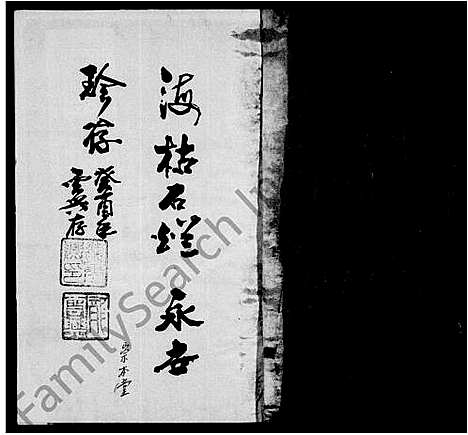 海枯石爛 永世
珍存
癸酉年
雲兴存
崇本堂
FamilySearch In